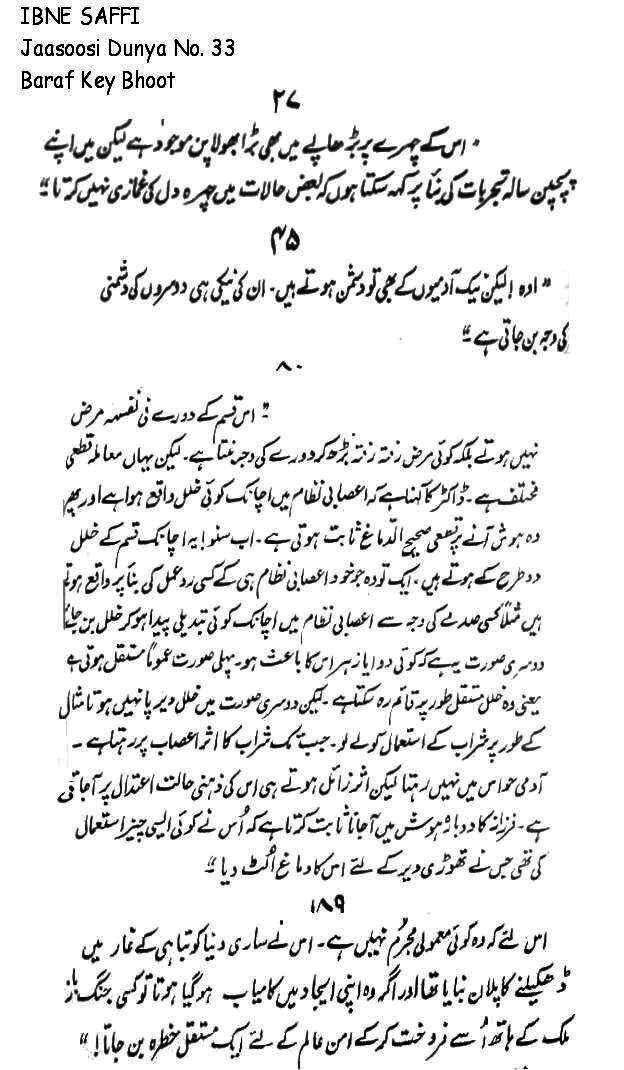 IBNE SAFFI
Jaasoosi Dunya No. 33
Baraf Key Bhoot
۲۷
" اس کے چہرے پر بڑھاپے میں بھی بڑا بھولا پن موجود ہے لیکن میں اپنے
پچپن سالہ تجربات کی بنا پر کہہ سکتا ہوں کہ بعض حالات میں چہرہ دل کی غمازی نہیں کرتا "
۴۵
" اوہ ! لیکن نیک آدمیوں کے بھی تو دشمن ہوتے ہیں۔ ان کی نیکی ہی دوسروں کی دشمنی
کی وجہ بن جاتی ہے "
۸۰
" اس قسم کے دورے فی نفسہہ مرض
نہیں ہوتے بلکہ کوئی مرض رفتہ رفتہ بڑھ کر دورے کی وجہ بنتا ہے۔ لیکن یہاں معاملہ قطعی
مختلف ہے۔ ڈاکٹر کا کہنا ہے کہ اعصابی نظام میں اچانک کوئی خلل واقع ہوا ہے اور پھر
وہ ہوش آنے پر قطعی صحیح الدماغ ثابت ہوتی ہے۔ اب سنو! یہ اچانک قسم کے خلل
دو طرح کے ہوتے ہیں۔ ایک تو وہ جو خود اعصابی نظام ہی کے کسی ردعمل کی بنا پر واقع ہوتے
ہیں مثلاً کسی صدمے کی وجہ سے اعصابی نظام میں اچانک کوئی تبدیلی پیدا ہو کر خلل بن جائے
دوسری صورت یہ ہے کہ کوئی دوا یا زہر اس کا باعث ہو۔ پہلی صورت عموماً مستقل ہوتی ہے
یعنی وہ خلل مستقل طور پر قائم رہ سکتا ہے۔ لیکن دوسری صورت میں خلل دیرپا نہیں ہوتا مثال
کے طور پر شراب کے استعمال کو لے لو۔ جب تک شراب کا اثر اعصاب پر رہتا ہے۔
آدمی حواس میں نہیں رہتا لیکن اثر زائل ہوتے ہی اس کی ذہنی حالت اعتدال پر آجاتی
ہے۔ فرزانہ کا دوبارہ ہوش میں آجانا ثابت کرتا ہے کہ اُس نے کوئی ایسی چیز استعمال
کی تھی جس نے تھوڑی دیر کے لئے اس کا دماغ اُلٹ دیا "
۱۸۹
اس لئے کہ وہ کوئی معمولی مجرم نہیں ہے۔ اس نے ساری دنیا کو تباہی کے غار میں
ڈھکیلنے کا پلان بنایا تھا اور اگر وہ اپنی ایجاد میں کامیاب ہو گیا ہوتا تو کسی جنگ باز
ملک کے ہاتھ اُسے فروخت کر کے امن عالم کے لئے ایک مستقل خطرہ بن جاتا! "